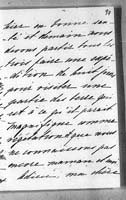 bien en bonne san-
té et demain nous
devons partir tous les
trois faire une expé-
dition de huit jours
pour visiter une
partie des terres qui
est à ce qu'il paraît
magnifique comme
végétation que nous
ne connaissons pas
encore maman et moi
chère